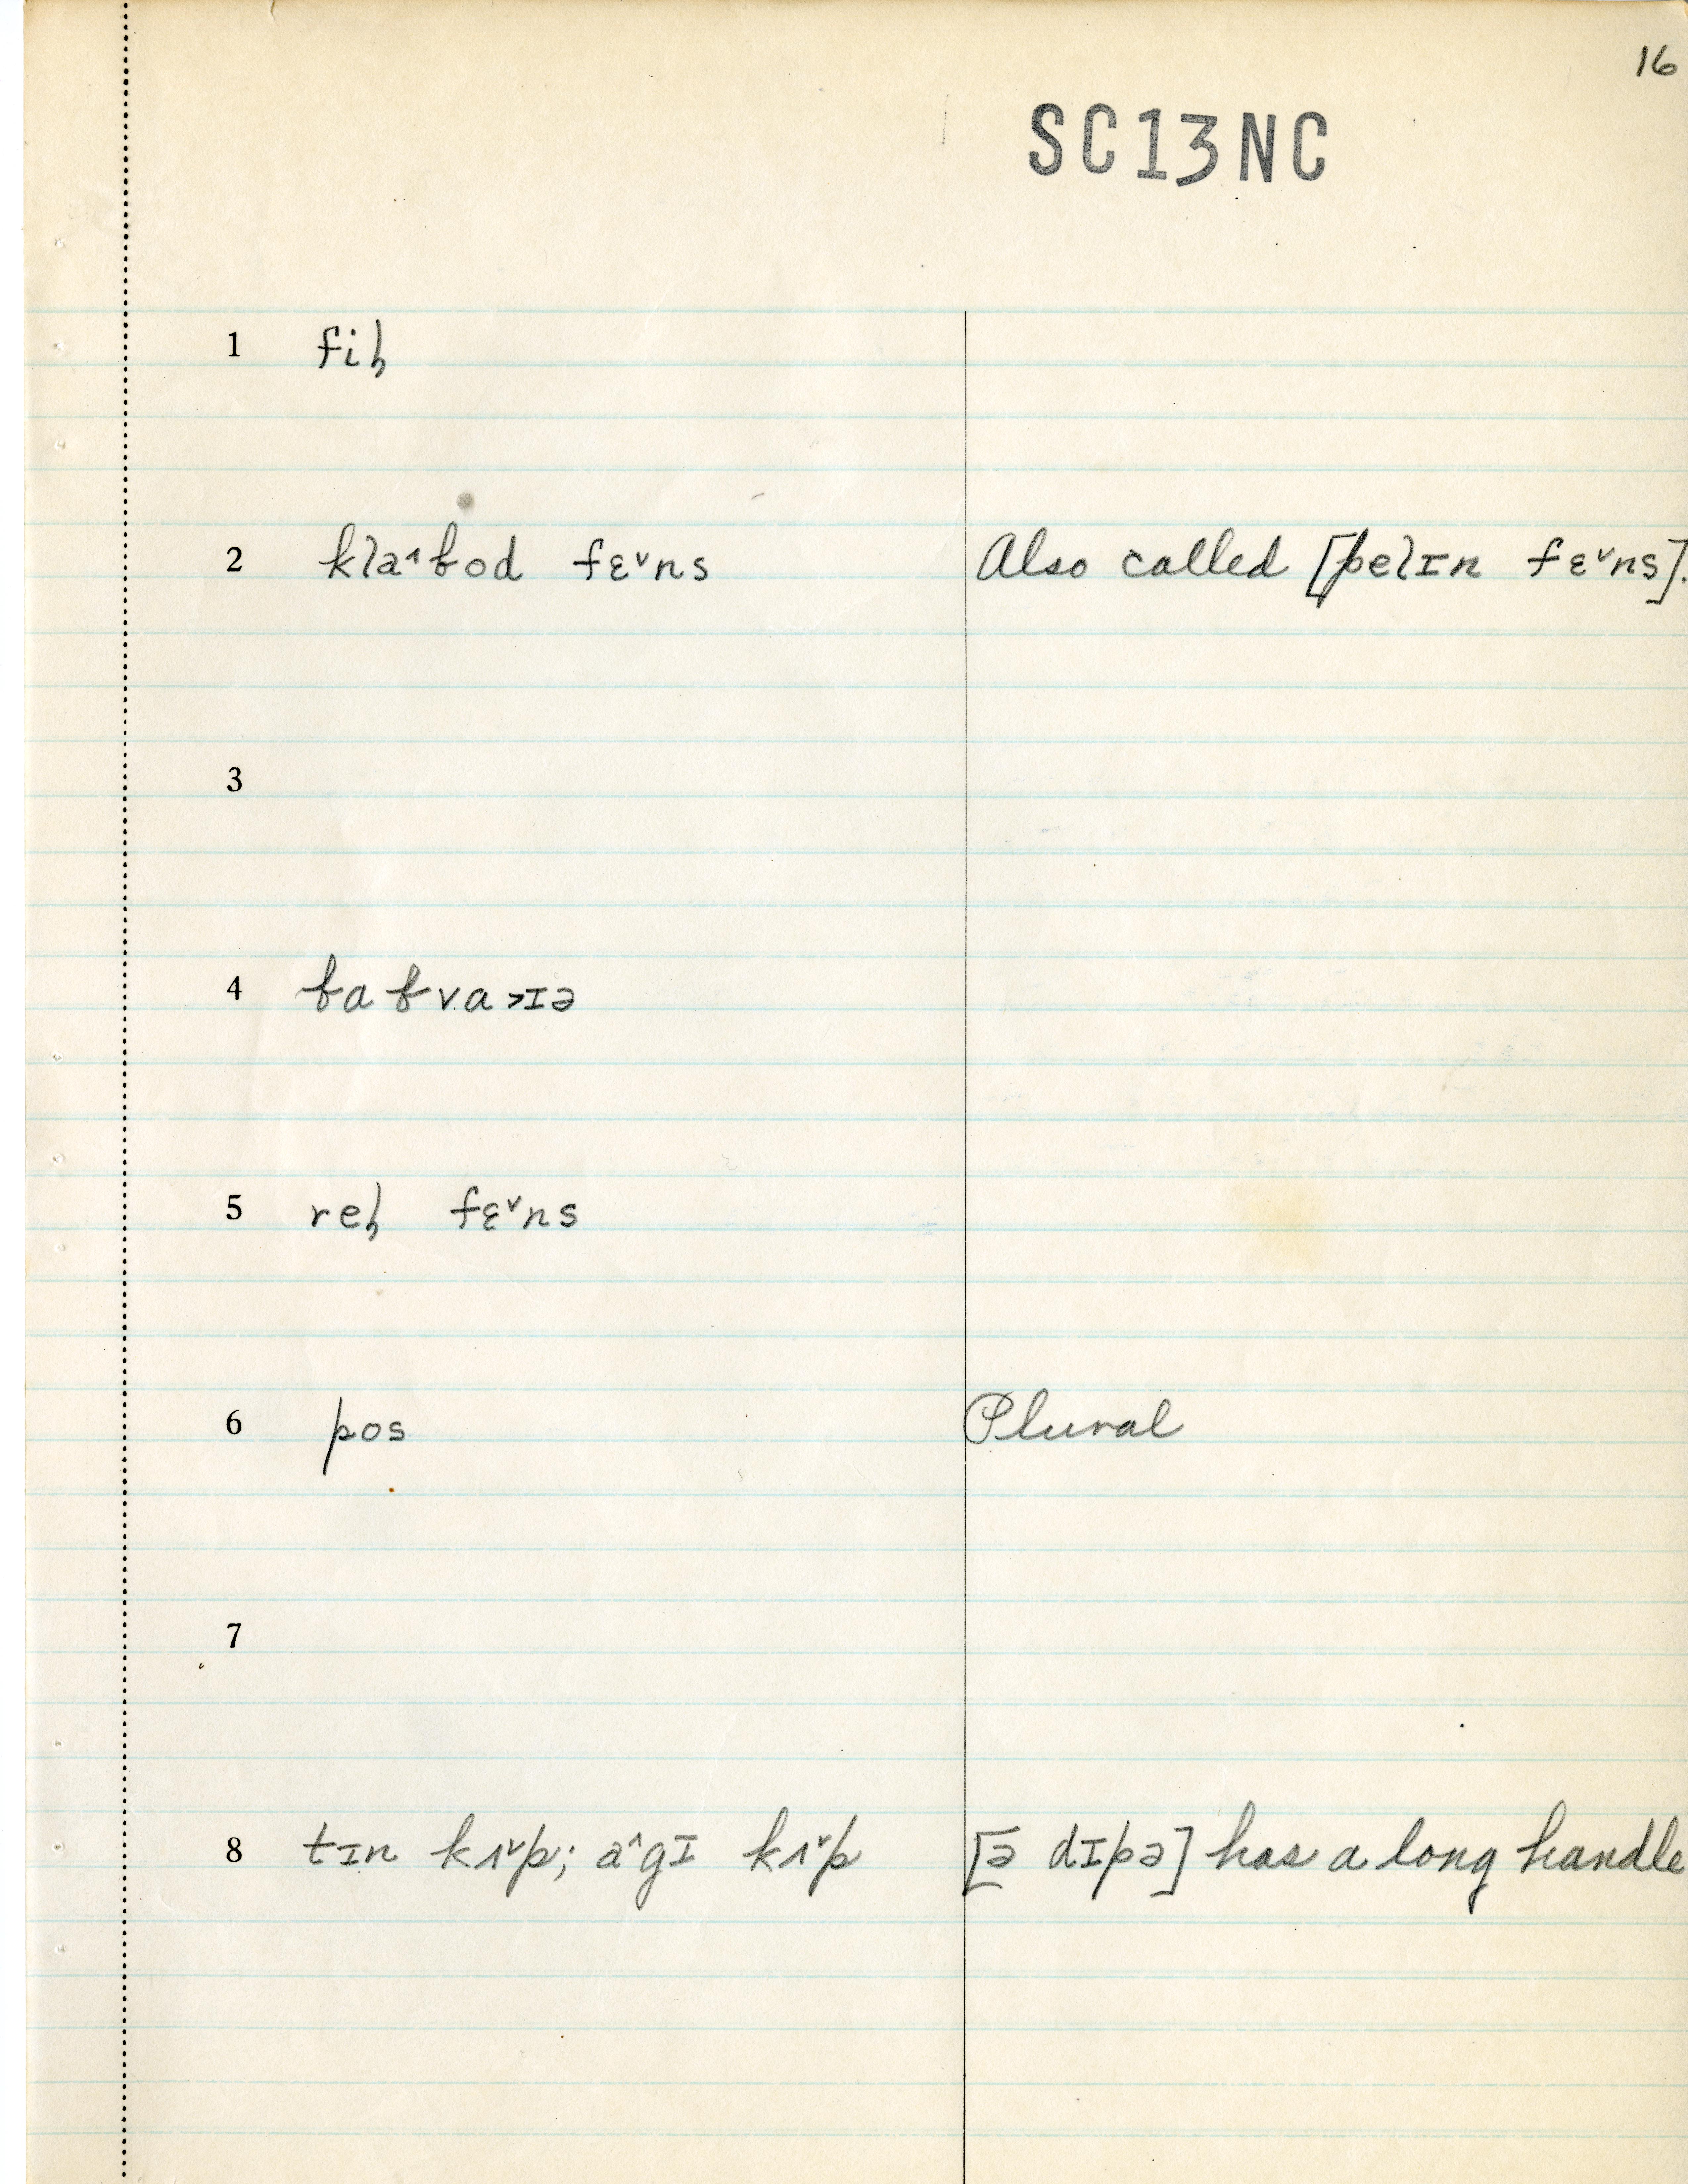 16
SC13NC
1 fiɫ
2 kla˄bod fɛ˅ns Also called [pelɪn fɛ˅ns].
3
4 babva˃ɪə
5 reɫ fɛ˅ns
6 pos Plural
7
8 tɪn kʌ˅p; a˄gɪ kʌ˅p [ə dɪpə] has a long handle